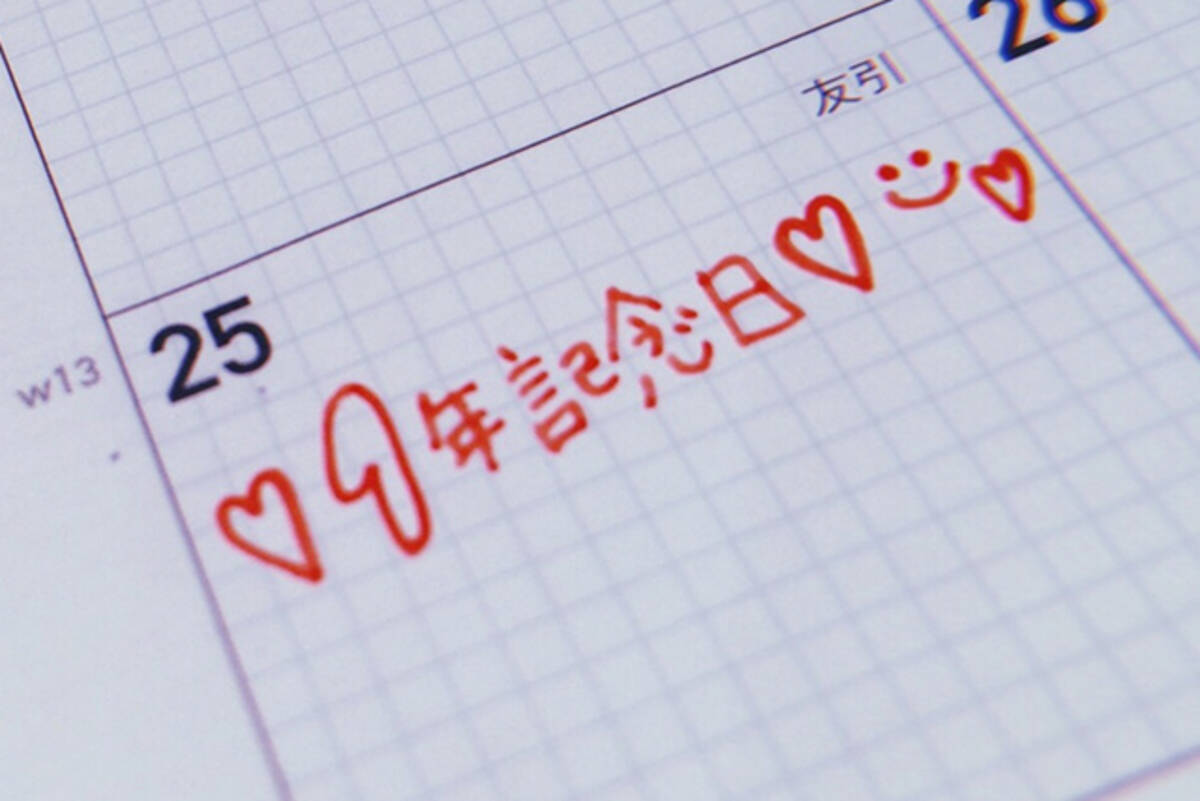 26
友引
25
w13
♡1年記念日♡ :)♡